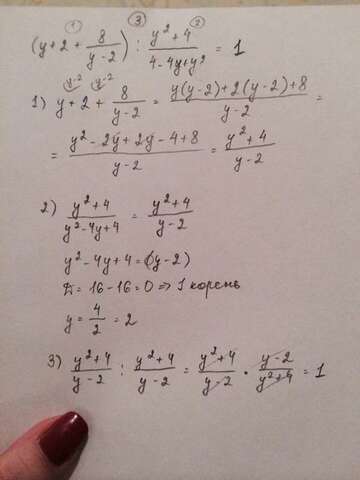 ① ③ ②
(y+2+8/(y-2)) : (y²+4)/(4-4y+y²) = 1
1) y+2+8/(y-2) = (y(y-2)+2(y-2)+8)/(y-2) =
y-2 y-2
= (y²-2y+2y-4+8)/(y-2) = (y²+4)/(y-2)
2) (y²+4)/(y²-4y+4) = (y²+4)/(y-2)
y²-4y+4=(y-2)
D=16-16=0 => 1 корень
y = 4/2 = 2
3) (y²+4)/(y-2) : (y²+4)/(y-2) = (y²+4)/(y-2) · (y-2)/(y²+4) = 1